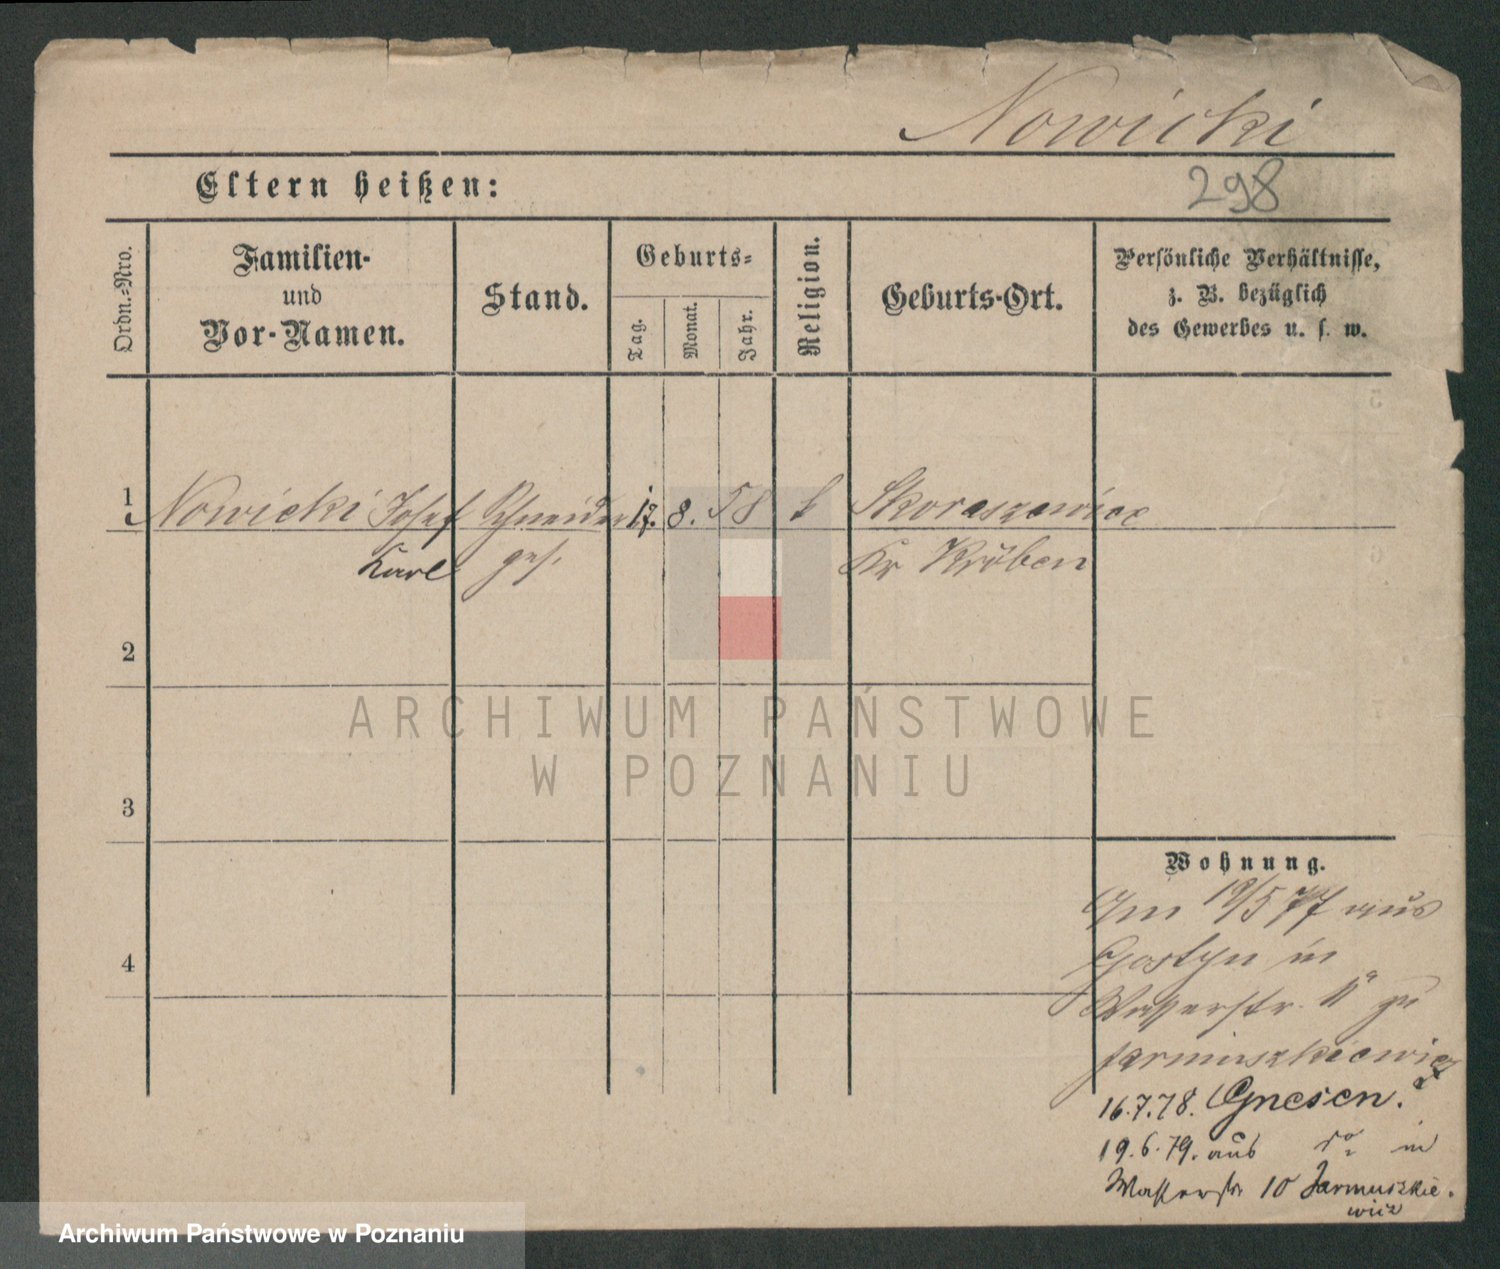 Nowicki
Eltern heißen:
298
Ordn.-Nro.
Familien-
und
Vor-Namen.
Stand.
Geburts-
Tag.
Monat.
Jahr.
Religion.
Geburts-Ort.
Persönliche Verhältnisse,
z. B. bezüglich
des Gewerbes u. s. w.
1 Nowicki Josef Schneider 17. 8. 58 k Skoraszewice
Karl ges. Kr Kröben
2
3
4
Wohnung.
Am 19/5 77 aus
Gostyn in
Wasserstr. 11a zu
Jarmuszkiewicz
16.7.78. Gnesen.
19.6.79. aus do in
Wasserstr 10 Jarmuszkie-
wicz
ARCHIWUM PAŃSTWOWE
W POZNANIU
Archiwum Państwowe w Poznaniu